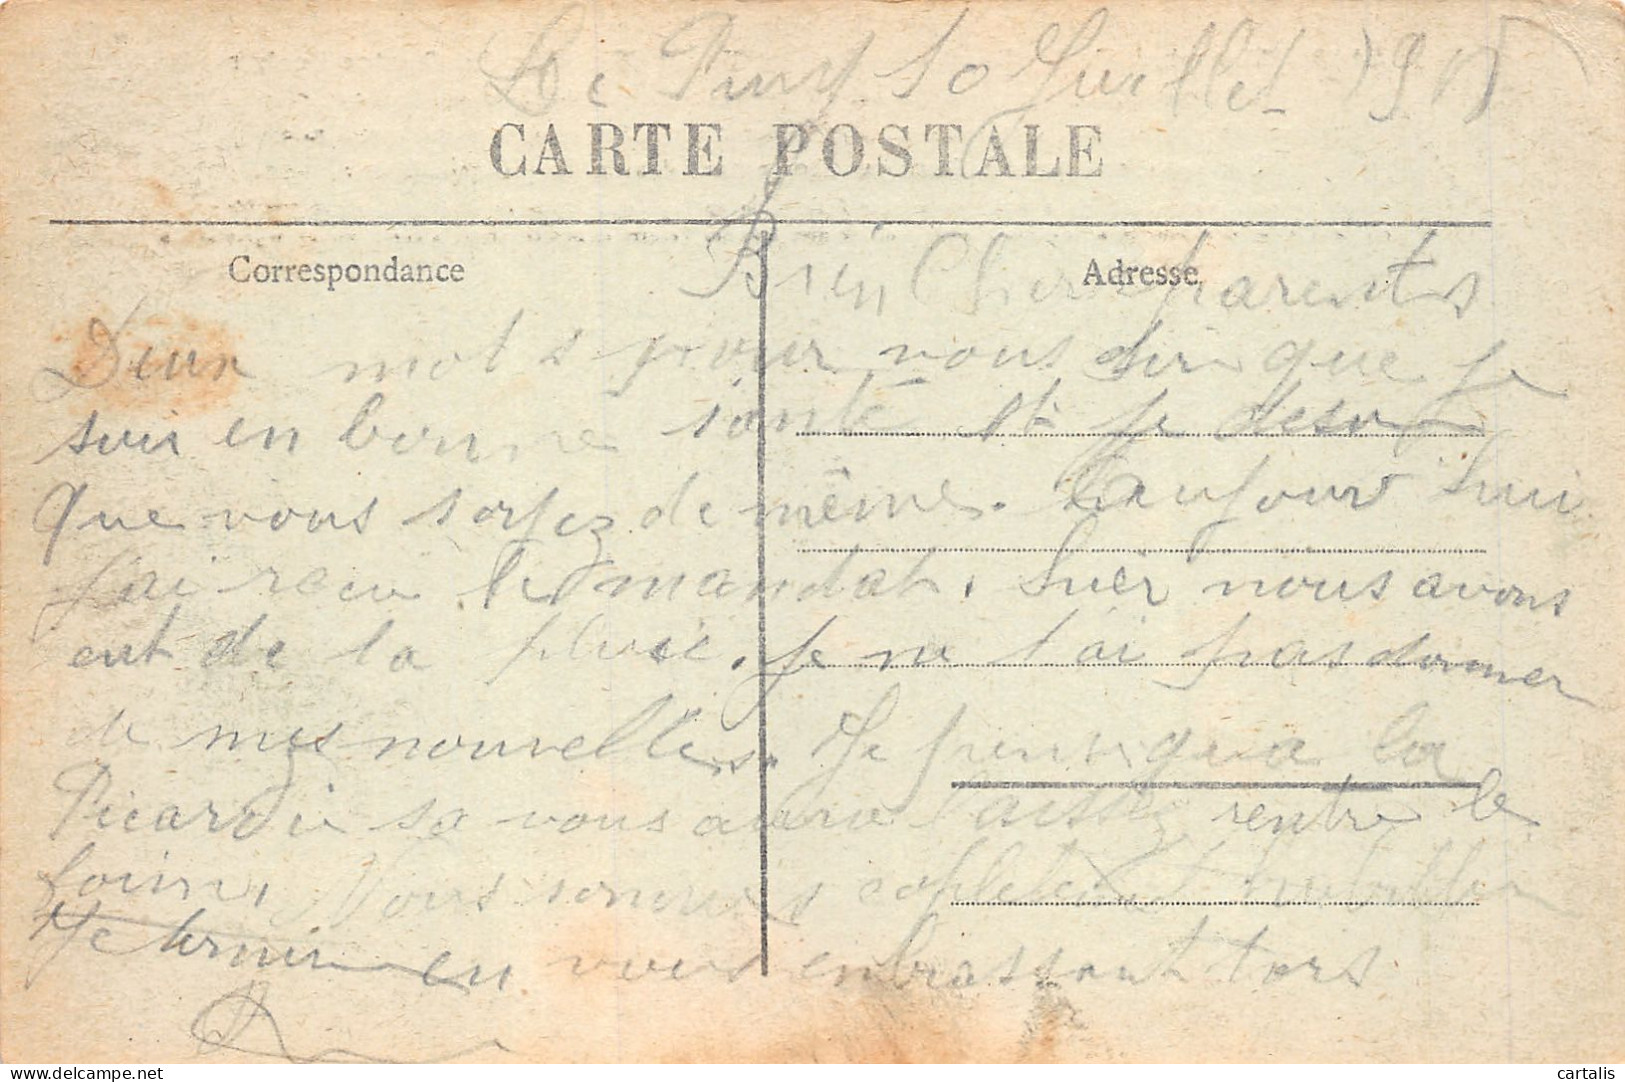 Le Puy 10 Juillet 191
CARTE POSTALE
Correspondance
Adresse
Bien Cher parents
Deux mots pour vous dire que je
suis en bonne santé et je desir
que vous soyez de même. Aujourd hui
j'ai recu le mandat, hier nous avons
eut de la pluie. je ne t'ai pas donner
de mes nouvelles. Je pense que a la
Picardie sa vous aura laissez rentre le
foins. Nous sommes copletement habiller
Je termine en vous enbrassant tors
delcampe.net
cartalis